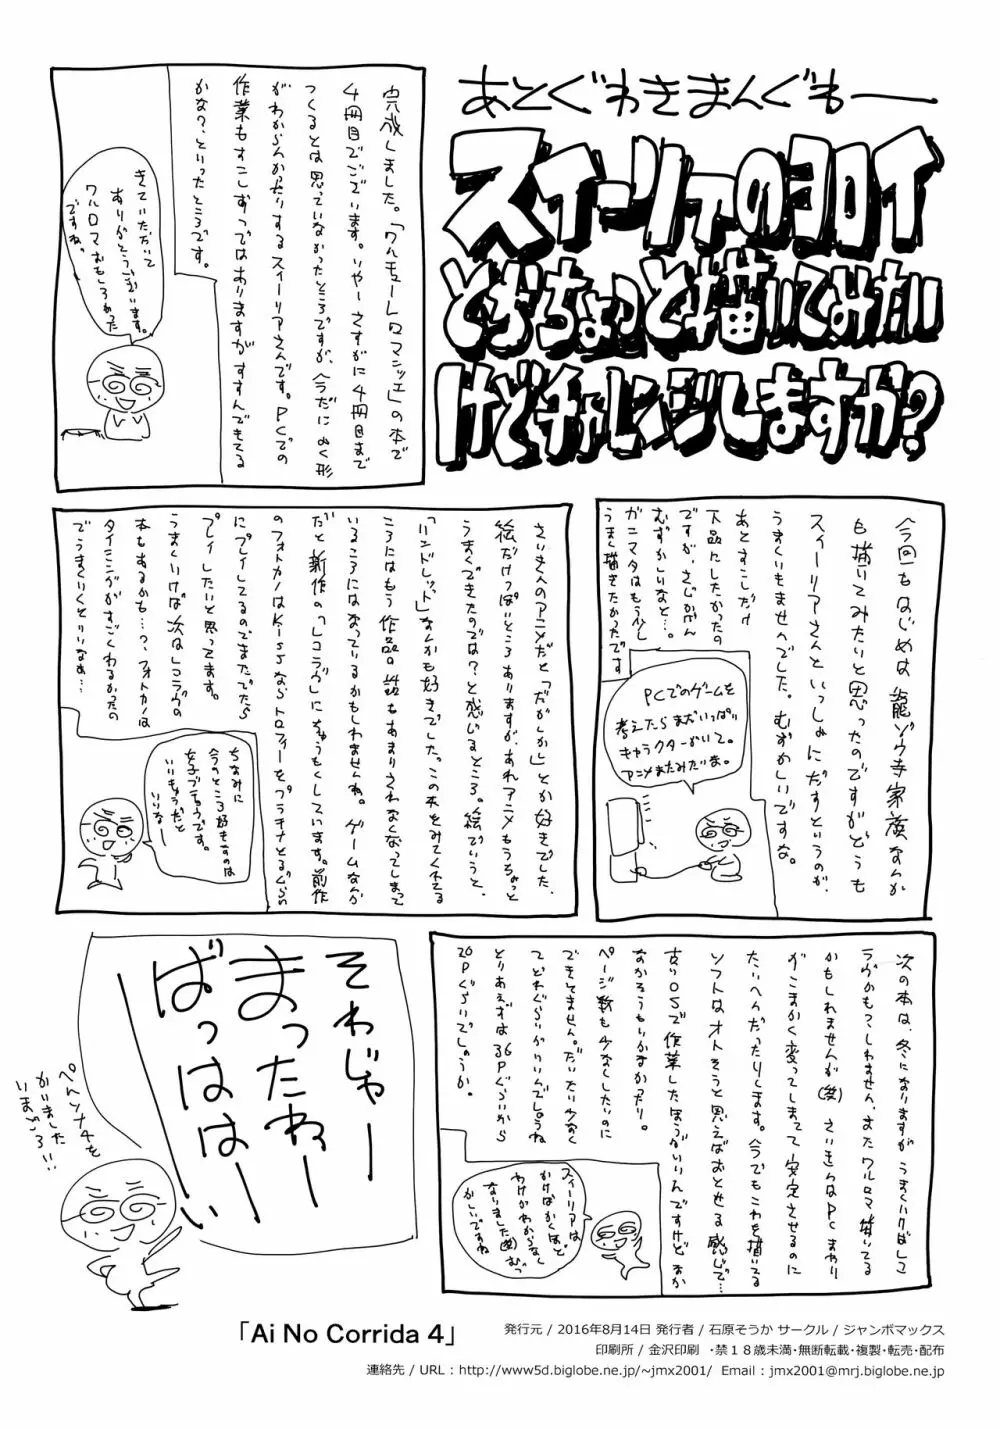 あとぐわきまんぐもー
スイーツリアのヨロイ
とぎちょっと描いてみたい
けどチャレンジしますか?
完成しました。「ワルキューレロマンツェ」の本で
4冊目でございます。いやーさすがに4冊目まで
つくるとは思っていなかったところですが、今だにぬく形
がわからんかったりするスィーリアさんです。PCでの
作業もすこしずつではありますがすすんでもてる
かな?、といったところです。
きていただいて
ありがとうございます。
ワルロマおもしろかった
ですね。
今回もはじめは龍ゾウ寺家族なんか
も描いてみたいと思ったのですがどうも
スィーリアさんといっしょにだすというのが、
うまくいきませんでした。むずかしいですな。
あとすこしだけ
下品にしたかったの
ですが、さじかげん
むずかしいなと…。
ガニマタはもう少し
うまく描きたかったです
PCでのゲームを
考えたらまだいっぱい
キャラクターがいて。
アニメまたみたいな。
さいきんのアニメだと「だがしかし」とか好きでした、
絵だけっぽいところありますが、あれアニメもうちょっと
うまくできたのでは?と感じるところ。絵でいうと、
「ハンドレッド」なんかも好きでした。この本をみてくれてる
ころにはもう作品の話もあまりされなくなってしまって
いるころにはなっているかもしれませんね。ゲームなんか
だと新作の「レコラヴ」にちゅうもくしています。前作
のフォトカノはKissならトロフィーをプラチナとるぐらい
にプレイしてるのでまたでたら
プレイしたいと思ってます。
うまくいけば次はレコラヴの
本もあるかも…?、フォトカノは
タイミングがすごくわるかったの
でうまくいくといいなぁ…
ちなみに
今のところ好きなのは
いいもうだと
いいなー
次の本は、冬になりますがうまくハクばレコ
ラヴかもっこしれません、またワルロマ描いてる
かもしれませんが(笑) さいきんはPCまわり
がこまかく変ってしまって安定させるのに
たいへんだったりします。今でもこれを描いてる
ソフトはオトそうと思えばおとせる感じで…
古いOSで作業したほうがいいんですけど
ページ数も少なしたいのに
できてません。だいたいわなく
てどれぐらいがいいんでしょうね
とりあえずは36Pぐらいから
20Pぐらいでしょうか。
スィーリアは
かけばかくほど
わけがわからなく
なりました(笑)むづ
かしいですね
それじゃー
まったねー
ばっははーい
ペルソナ4を
かいました
いまごろ!!
「Ai No Corrida 4」
発行元 / 2016年8月14日 発行者 / 石原そうか サークル / ジャンボマックス
印刷所 / 金沢印刷 ・禁18歳未満・無断転載・複製・転売・配布
連絡先 / URL : http://www5d.biglobe.ne.jp/~jmx2001/ Email : jmx2001@mrj.biglobe.ne.jp